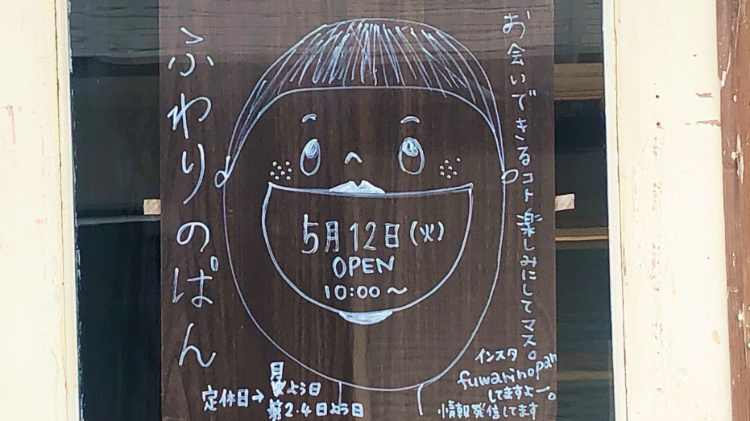 お会いできるコト楽しみにしてマス。
ふわりのぱん
5月12日(火)
OPEN
10:00〜
インスタ
fuwarinopan
してますよー。
情報発信してます
定休日→月よう日
第2.4日よう日